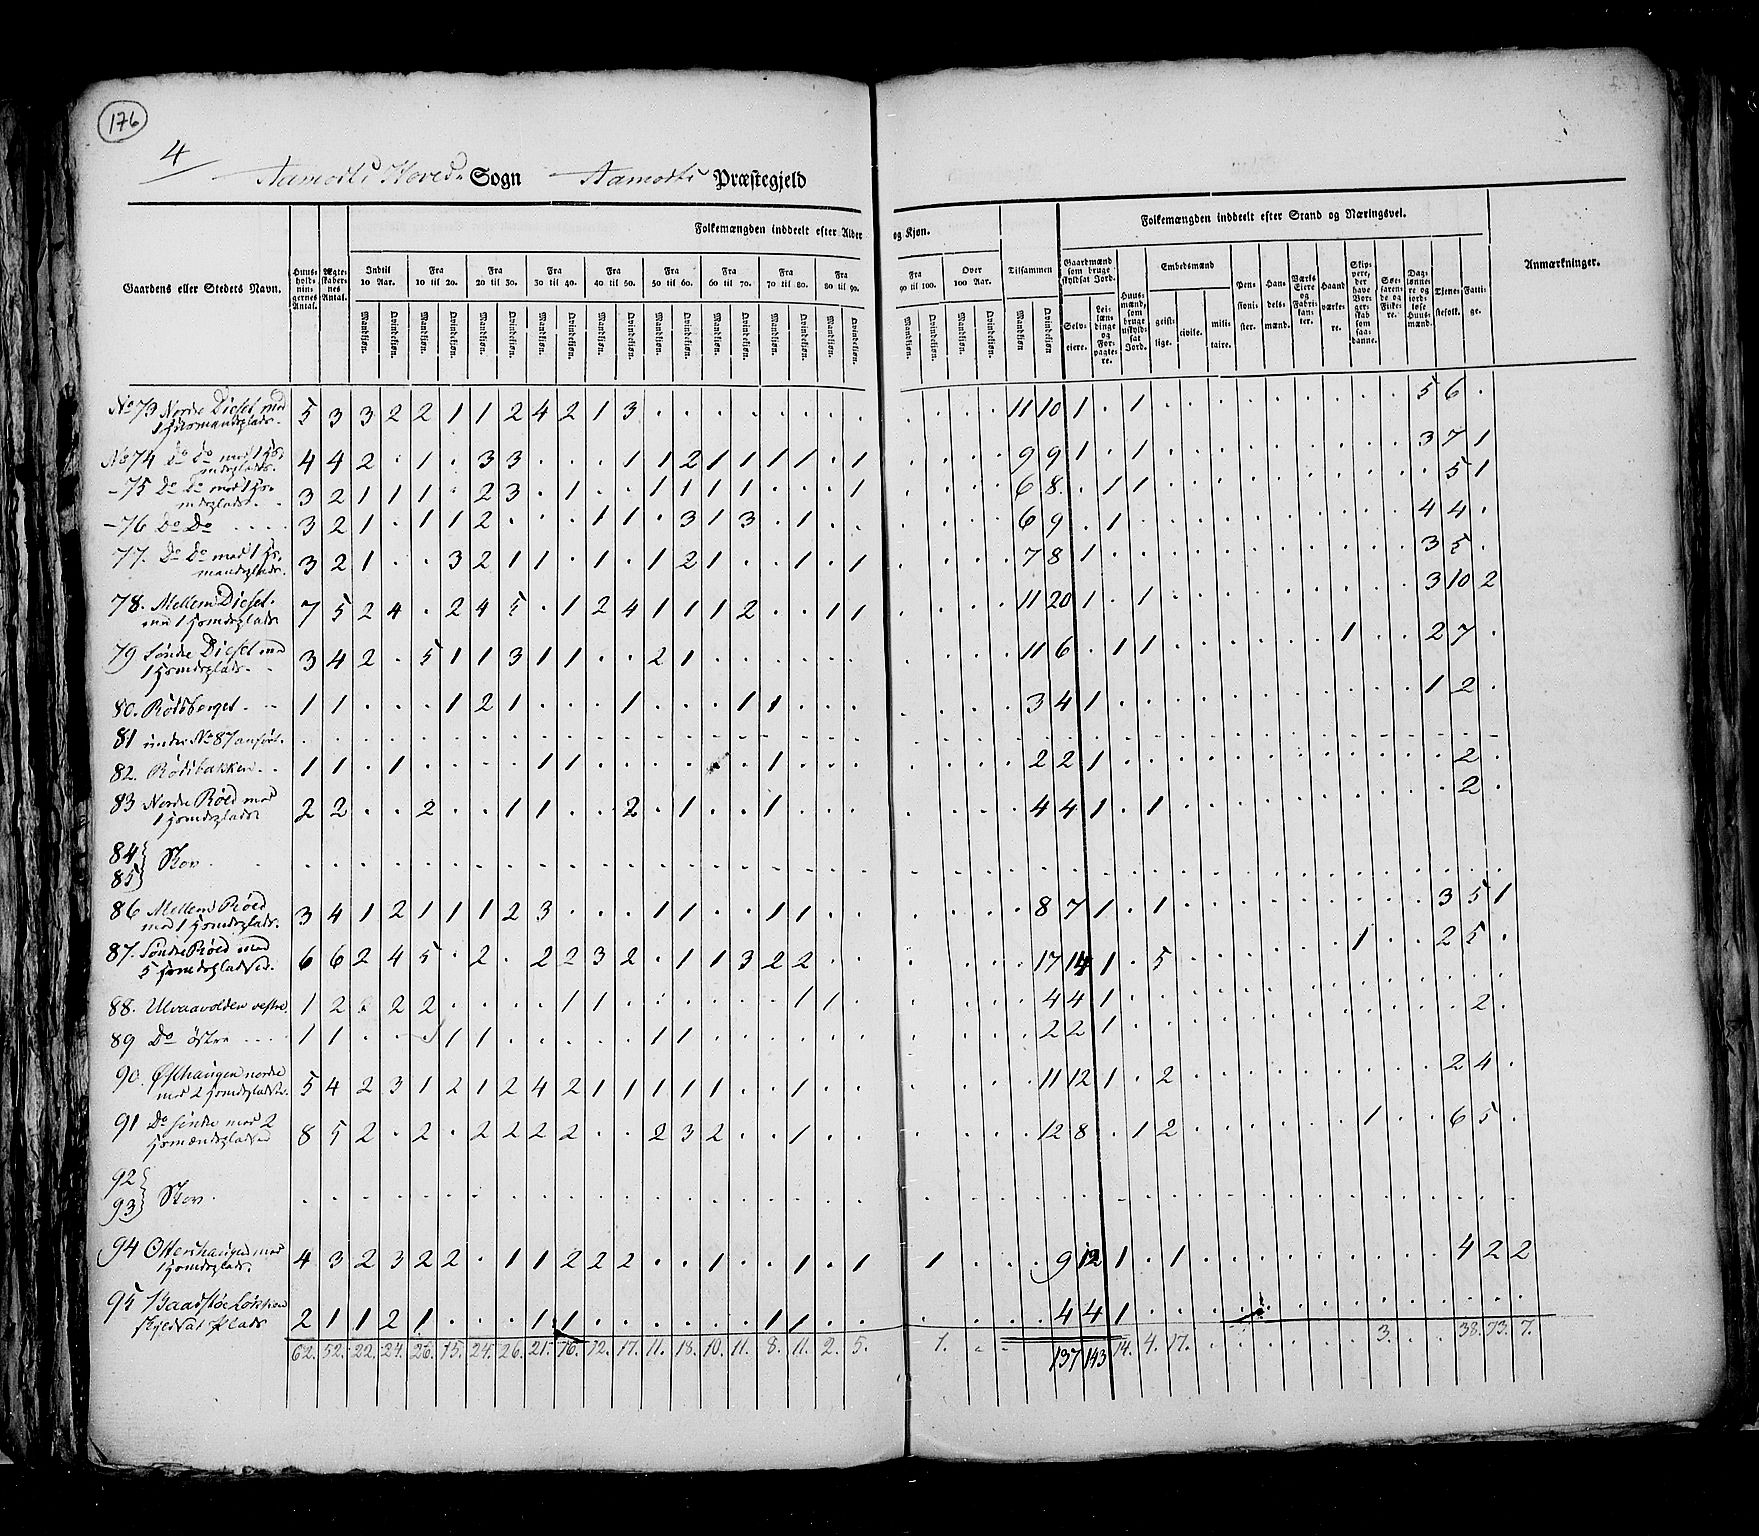 176
4
Aamodts Hoved Sogn Aamodts Præstegjeld
Gaardens eller Stedets Navn.
Huusholdningernes Antal.
Ægteskabernes Antal.
Folkemængden inddeelt efter Alder og Kjøn.
Indtil 10 Aar. Fra 10 til 20. Fra 20 til 30. Fra 30 til 40. Fra 40 til 50. Fra 50 til 60. Fra 60 til 70. Fra 70 til 80. Fra 80 til 90. Fra 90 til 100. Over 100 Aar. Tilsammen
Mandkjøn. Qvindekjøn.
Folkemængden inddeelt efter Stand og Næringsvei.
Gaardmænd som bruge skyldsat Jord.
Selveiere. Leilændinge og Forpagtere.
Huusmænd, som bruge uskyldsat Jord.
Embedsmænd
geistlige. civile. militaire.
Pensionister.
Handelsmænd.
Værks Eiere og Fabrikanter.
Haandværkere.
Skippere, der have Borgerskab som saadanne.
Søefarende og Fiskere.
Daglønnere og jordløse Huusmænd.
Tjenestefolk.
Fattige.
Anmærkninger.
No 73 Nordre Dieset med 1 Huusmandsplads. 5 3 3 2 2 1 1 2 4 2 1 3 . . . . . . . . . . . . 11 10 1 . 1 . . . . . . . . . 5 6 .
No 74 Do Do med 1 Hsmdsplads. 4 4 2 . 1 . 3 3 . . . 1 1 2 1 1 1 1 . 1 . . . . 9 9 1 . 1 . . . . . . . . . 3 7 1
- 75 Do Do med 1 Hsmdsplads. 3 2 1 1 1 . 2 3 . 1 . . 1 1 1 1 . . . 1 . . . . 6 8 . 1 1 . . . . . . . . . . 5 1
- 76 Do Do 3 2 1 . 1 1 2 . . . 1 1 . 3 1 3 . 1 . . . . . . 6 9 . 1 . . . . . . . . . . 4 4 .
77. Do Do med 1 Hsmandsplads. 3 2 1 . . 3 2 1 1 . 1 . 1 2 1 . . 1 . 1 . . . . 7 8 1 . . . . . . . . . . . 3 5 .
78. Mellem Dieset med 1 Hsmdsplads 7 5 2 4 . 2 4 5 . 1 2 4 1 1 1 2 . . 1 1 . . . . 11 20 1 . 1 . . . . . . . . . 3 10 2
79 Søndre Dieset med 1 Hsmdsplads. 3 4 2 . 5 1 1 3 1 1 . . 2 1 . . . . . . . . . . 11 6 . 1 1 . . . . . . 1 . . 2 7 .
80. Rødsberget 1 1 . . . 1 2 1 . . . 1 . . . 1 1 . . . . . . . 3 4 1 . . . . . . . . . . . 1 2 .
81 under No 87 anført.
82. Rødsbakken 1 1 . 1 . . . . 1 1 . . . . . . 1 . . . . . . . 2 2 1 . . . . . . . . . . . . 2 .
83 Nordre Røed med 1 Hsmdsplads 2 2 . . 2 . . 1 1 . . 2 . 1 . . 1 . . . . . . . 4 4 1 . 1 . . . . . . . . . . 2 .
84
85 } Skov
86 Mellem Røed med 1 Hsmdsplads. 3 4 1 2 1 1 1 2 3 . . . 1 1 . . 1 1 . . . . . . 8 7 1 . 1 . . . . . . . . . 3 5 1
87. Søndre Røed med 5 Hsmdspladser. 6 6 2 4 5 . 2 . 2 2 3 2 . 1 1 3 2 2 . . . . . . 17 14 1 . 5 . . . . . . 1 . . 2 5 .
88. Ulvaavolden vestre 1 2 . 2 2 . . . . 1 1 . . . . . . 1 1 . . . . . 4 4 1
89 Do østre 1 1 . . . 1 1 . . . . . 1 1 . . . . . . . . . . 2 2 1 . . . . . . . . . . . . 2 .
90. Østhaugen nordre med 2 Hsmdspladser. 5 4 2 3 1 2 1 2 4 2 1 1 1 1 1 . . 1 . . . . . . 11 12 1 . 2 . . . . . . . . . 2 4 .
91 Do søndre med 2 Hsmændspladser 8 5 2 . 2 . 2 2 2 2 . . 2 3 2 . . 1 . . . . . . 12 8 . 1 2 . . . . . . 1 . . 6 5 .
92
93 } Skov
94 Ottershaugen med 1 Hsmdsplads. 4 3 2 3 2 2 . 1 1 2 2 2 . . 1 . . 1 . 1 1 . . . 9 12 1 . 1 . . . . . . . . . 4 2 2
95 skyldsat Plads 2 1 1 2 1 . . . 1 1 . . . . . . 1 1 . . . . . . 4 4 1
62. 52. 22. 24. 26. 15. 24. 26. 21. 16. 12. 17. 11. 18. 10. 11. 8. 11. 2. 5. 1. 137 143 14. 4. 17. 3. 38. 73. 7.